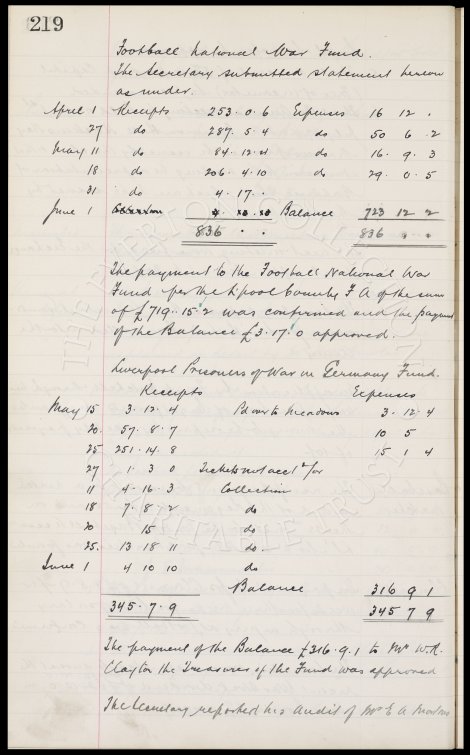 219
Football National War Fund.
The Secretary submitted statement hereon
as under.
April 1 Receipts 253. 0. 6 Expenses 16 12 .
27 do 287. 5. 4 do 50 6. 2
May 11 do 84. 12. 4 do 16. 9. 3
18 do 206. 4. 10 do 29. 0. 5
31 do 4. 17. .
June 1 Balance 723 12 2
836 . . 836 . .
The payment to the Football National War
Fund per the L'pool County F A of the sum
of £719. 15. 2 was confirmed and the payment
of the Balance £3. 17. 0 approved.
Liverpool Prisoners of War in Germany Fund.
Receipts Expenses
May 15 3. 12. 4 3. 12. 4
20. 57. 8. 7 10 5
25 251. 14. 8 15 1 4
27 1. 3 0 Tickets not acct'd for
11 4. 16. 3 Collection
18 7. 8. 2 do
20 15 do
25. 13 18 11 do.
June 1 4 10 10 do
Balance 316 9 1
345. 7. 9 345 7 9
The payment of the Balance £316. 9. 1 to Mr W. R.
Clayton the Treasurer of the Fund was approved
The Secretary reported his audit of Mr E A
THE EVERTON COLLECTION
CHARITABLE TRUST